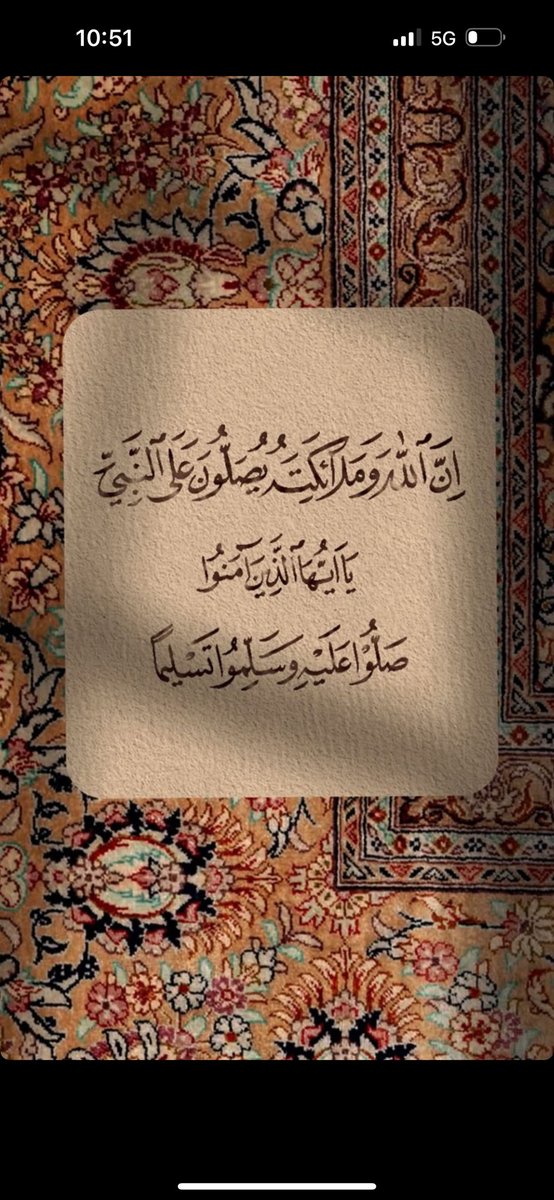 10:51
5G
اِنَّ ٱللّٰهَ وَمَلَآئِكَتَهُ يُصَلُّونَ عَلَى ٱلنَّبِيِّ
يَا اَيُّهَا ٱلَّذِينَ آمَنُوا
صَلُّوْا عَلَيْهِ وَسَلِّمُوا تَسْلِيمًا